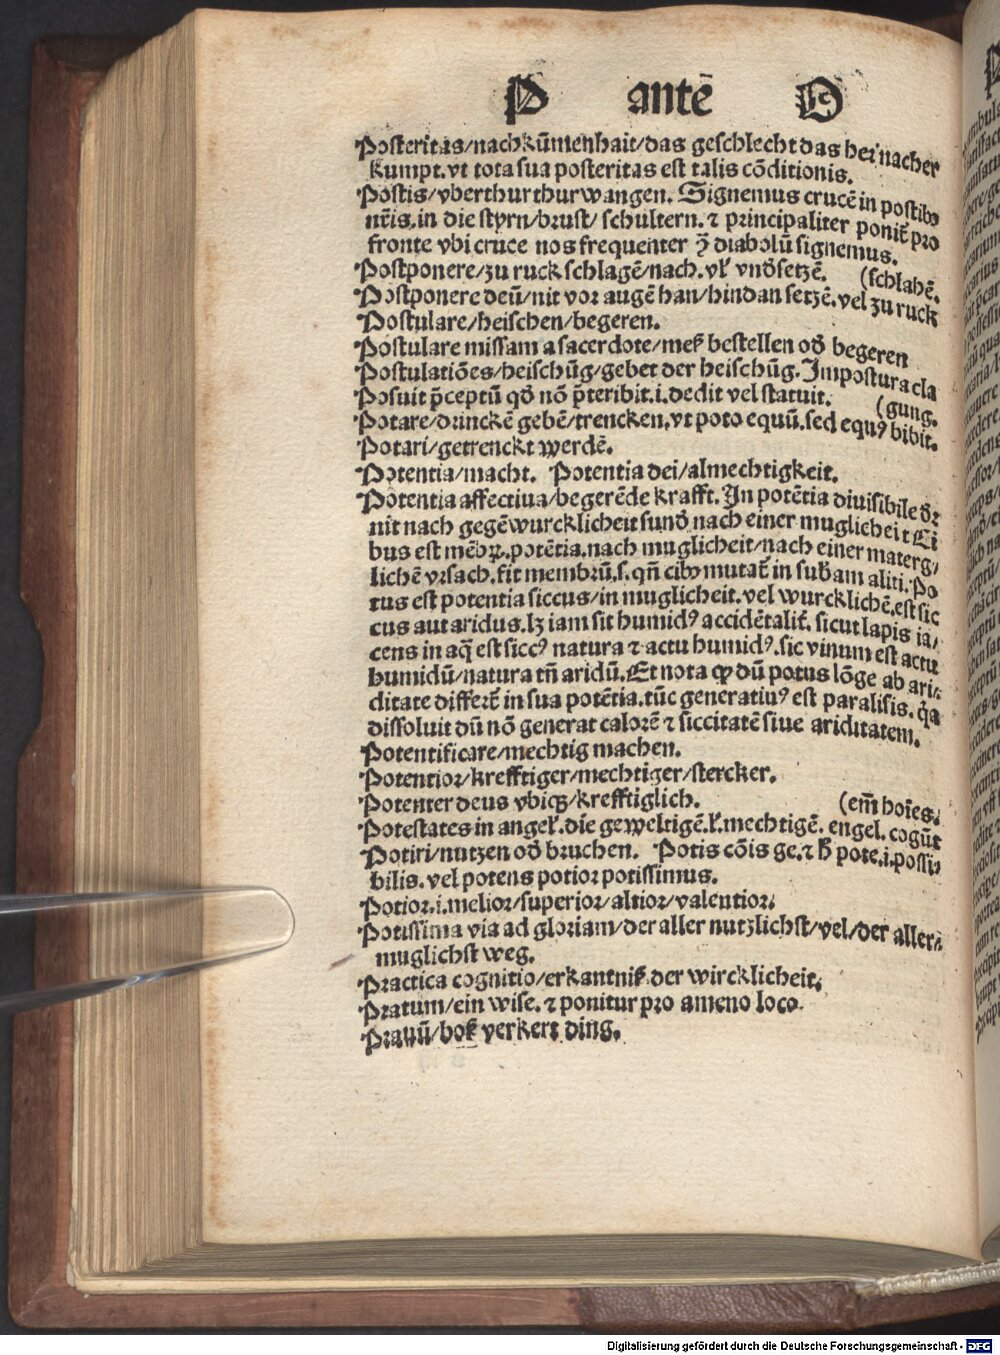 P antē O
Posteritas/nachkūmenhait/das geschlecht das her nacher
kumpt. vt tota sua posteritas est talis cōditionis.
Postis/vberthur thurwangen. Signemus crucē in postibꝰ
nr̄is. in die styrn/brust/ schultern. ⁊ principaliter ponit̄ pro
fronte vbi cruce nos frequenter ꝯ̄ diabolū signemus.
Postponere/zu ruck schlagē/nach. vl̓ vnd̓setzē. (schlahē.
Postponere deū/nit vor augē han/hindan setzē. vel zu ruck
Postulare/heischen/begeren.
Postulare missam a sacerdote/meß bestellen od̓ begeren
Postulatiōes/heischūg/gebet der heischūg. Impostura cla
Posuit p̄ceptū qd̓ nō p̄teribit .i. dedit vel statuit. (gung.
Potare/drinckē gebē/trencken. vt poto equū. sed equꝰ bibit.
Potari/getrenckt werdē.
Potentia/macht. Potentia dei/almechtigkeit.
Potentia affectiua/begerēde krafft. In potētia diuisibile d̓r
nit nach gegēwurcklicheit sund̓ nach einer muglicheit Ci
bus est mēbꝝ. potētia. nach muglicheit/nach einer materg/
lichē vrsach. fit membrū .s. qn̄ cibꝰ mutat̄ in sub̄am aliti. Po
tus est potentia siccus/in muglicheit. vel wurcklichē. est sic
cus aut aridus. lꝫ iam sit humidꝰ accidētalit̄. sicut lapis ia/
cens in aq̄ est siccꝰ natura ⁊ actu humidꝰ. sic vinum est actu
humidū/natura tn̄ aridū. Et nota ꝙ dū potus lōge ab ari/
ditate differt̄ in sua potētia. tūc generatiuꝰ est paralisis. q̓a
dissoluit dū nō generat calorē ⁊ siccitatē siue ariditatem.
Potentificare/mechtig machen.
Potentior/krefftiger/mechtiger/stercker.
Potenter deus vbiqꝫ/krefftiglich. (em̄ hoīes.
Potestates in angel̓. die geweltigē. l̓. mechtigē. engel. cogūt
Potiri/nutzen od̓ bruchen. Potis cōis ge. ⁊ h̓ pote .i. possi
bilis. vel potens potior potissimus.
Potior .i. melior/superior/altior/valentior.
Potissima via ad gloriam/der aller nutzlichst/vel/der aller/
muglichst weg.
Practica cognitio/erkantniß der wircklicheit.
Pratum/ein wise. ⁊ ponitur pro ameno loco.
Prauū/boß verkert ding.
Digitalisierung gefördert durch die Deutsche Forschungsgemeinschaft - DFG